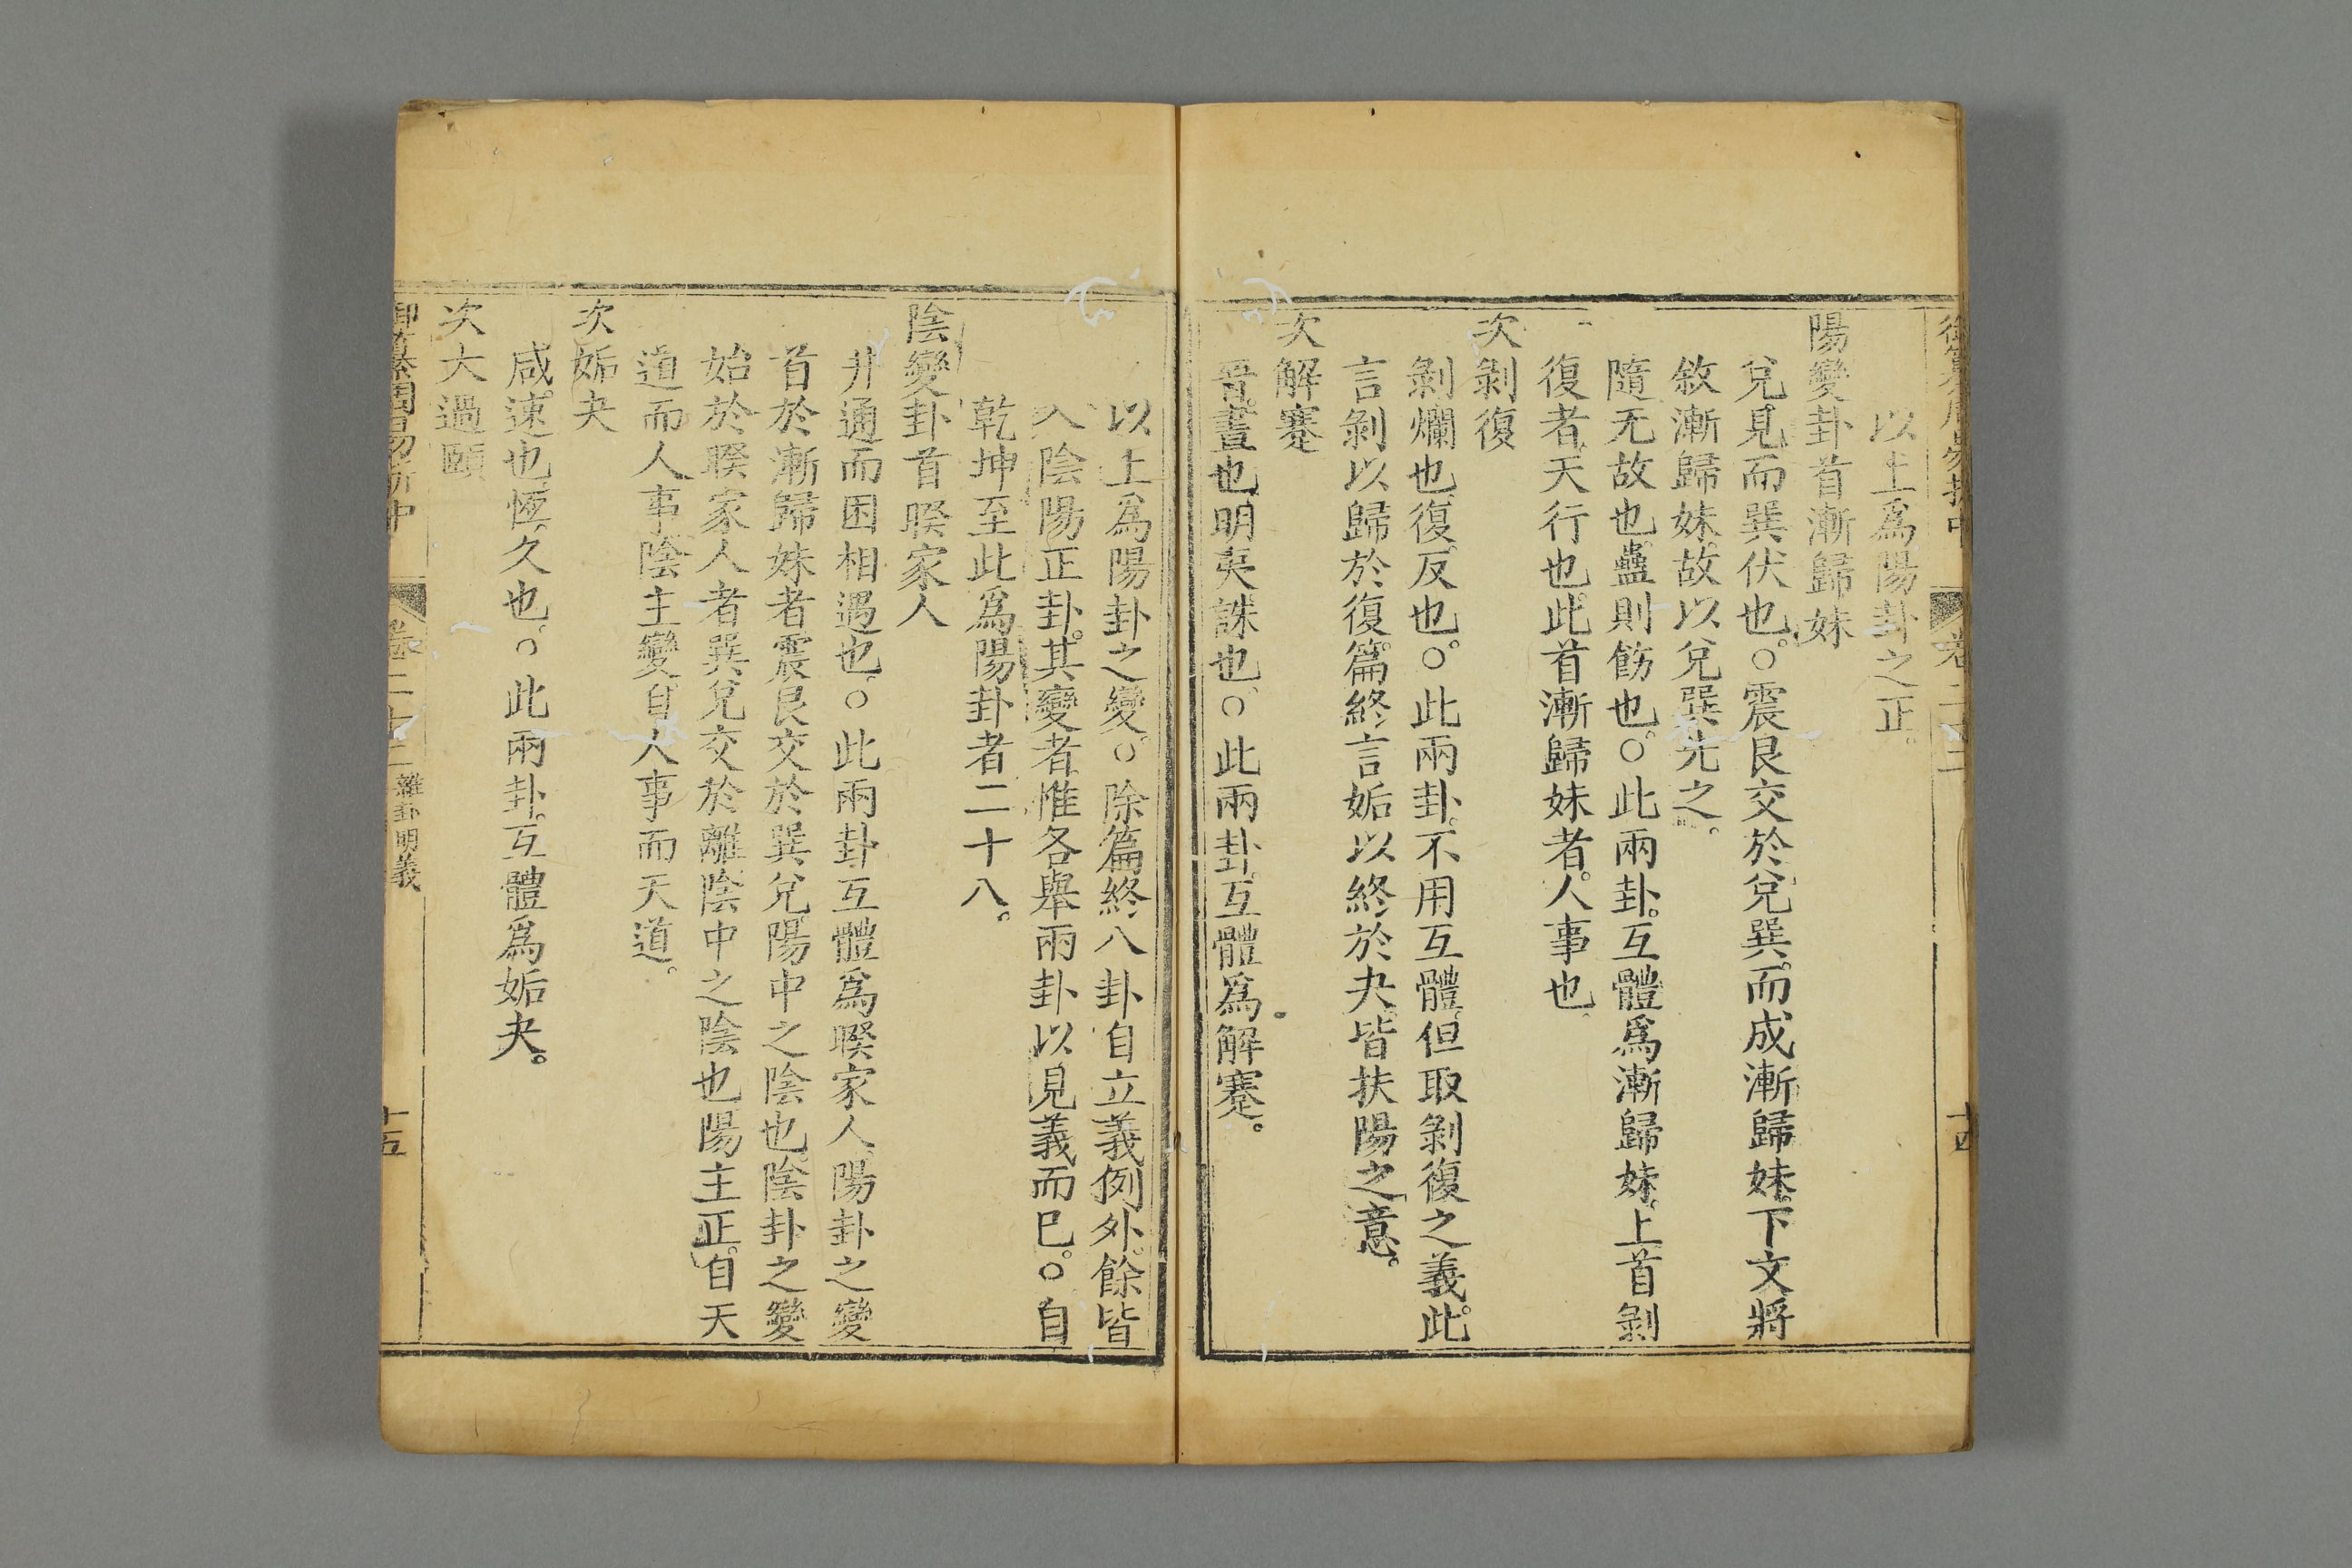 御纂周易折中 卷二十二 十四
以上爲陽卦之正。
陽變卦首漸歸妹
兌見而巽伏也。○震艮交於兌巽。而成漸歸妹。下文將
敘漸歸妹。故以兌巽先之。
隨无故也。蠱則飭也。○此兩卦。互體爲漸歸妹。上首剝
復者。天行也。此首漸歸妹者。人事也。
次剝復
剝爛也。復反也。○此兩卦。不用互體。但取剝復之義。此
言剝以歸於復。篇終言姤以終於夬。皆扶陽之意。
次解蹇
晉。晝也。明夷。誅也。○此兩卦。互體爲解蹇。
以上爲陽卦之變。○除篇終八卦自立義例外。餘皆
入陰陽正卦。其變者。惟各舉兩卦以見義而已。○自
乾坤至此爲陽卦者二十八。
陰變卦首睽家人
井通而困相遇也。○此兩卦互體爲睽家人。陽卦之變
首於漸歸妹者。震艮交於巽兌。陽中之陰也。陰卦之變
始於睽家人者。巽兌交於離。陰中之陰也。陽主正。自天
道而人事。陰主變。自人事而天道。
次姤夬
咸。速也。恆。久也。○此兩卦。互體爲姤夬。
次大過頤
御纂周易折中 卷二十二 雜卦明義 十五